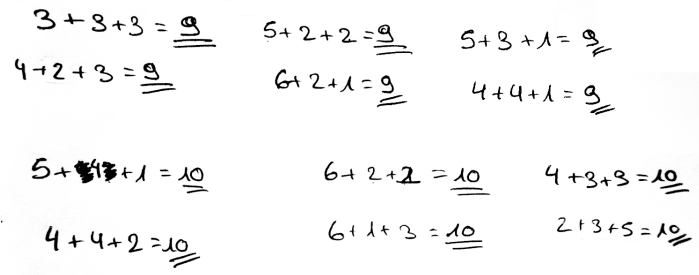 3 + 3 + 3 = 9
5 + 2 + 2 = 9
5 + 3 + 1 = 9
4 + 2 + 3 = 9
6 + 2 + 1 = 9
4 + 4 + 1 = 9
5 + 4 + 1 = 10
6 + 2 + 2 = 10
4 + 3 + 3 = 10
4 + 4 + 2 = 10
6 + 1 + 3 = 10
2 + 3 + 5 = 10